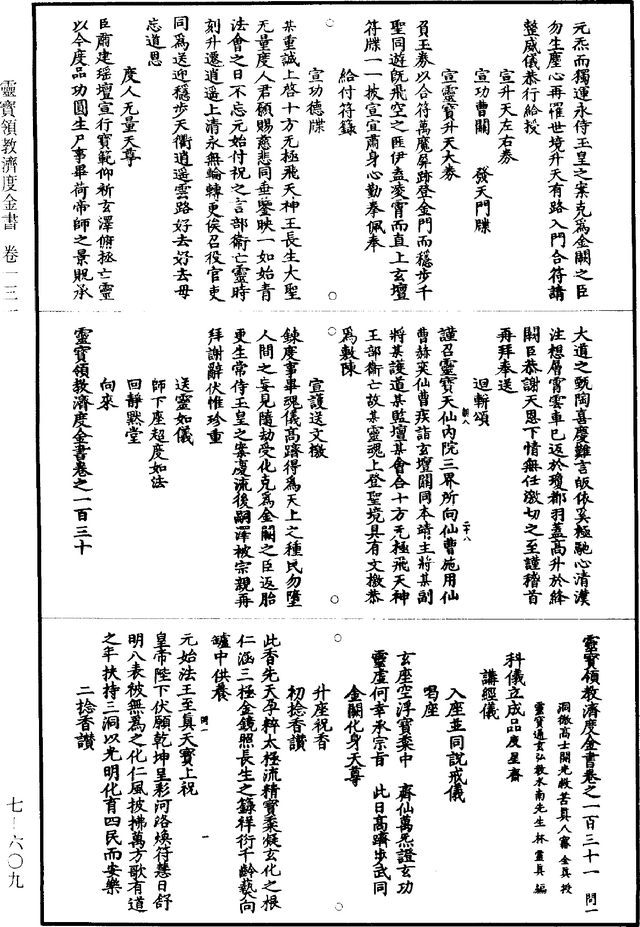 靈寶領教濟度金書 卷一三一
七－六〇九
元炁而獨運永侍玉皇之案克為金闕之臣
勿生塵心再罹世境升天有路入門合符請
整威儀恭行給授
宣升天左右券
宣功曹關 發天門牒
宣靈寶升天大券
負玉券以合符萬魔屏跡登金門而穩步千
聖同遊旣飛空之匪伊盍凌霄而直上玄壇
符牒一一披宣宜肅身心勤拳佩奉
給付符籙
宣功德牒
某重誠上啓十方无極飛天神王長生大聖
无量度人君願賜慈悲同垂鑒映一如始青
法會之日不忘元始付祝之言部衛亡靈時
刻升遷逍遥上清永無輪轉更俟召役官吏
同為送迎穩步天衢逍遥雲路好去好去毋
忘道恩
度人无量天尊
臣肅建瑶壇宣行寶範仰祈玄澤俯拯亡靈
以今度品功圓生尸事畢荷帝師之景貺承
大道之甄陶喜慶難言皈依奚極馳心清漢
注想層霄雲車已返於瓊都羽蓋高升於絳
闕臣恭謝天恩下情無任激切之至謹稽首
再拜奉送
迴輧頌
謹召靈寶天仙內院三界所向仙曹施用仙
曹赫奕仙曹疾詣玄壇關同本靖主將某副
將某護道某監壇某會合十方无極飛天神
王部衛亡故某靈魂上登聖境具有文檄恭
為敷陳
宣護送文檄
鍊度事畢魂儀高躋得為天上之種民勿墮
人間之妄見隨劫受化克為金闕之臣返胎
更生常侍玉皇之案慶流後嗣澤被宗親再
拜謝辭伏惟珍重
送靈如儀
師下座起度如法
回靜黙堂
向來
靈寶領教濟度金書卷之一百三十
靈寶領教濟度金書卷之一百三十一 問一
洞微高士開光救苦真人甯全真授
靈寶通玄弘教水南先生林靈真編
科儀立成品度星齋
講經儀
入座並同說戒儀
唱座
玄座空浮寶藥中 齋仙萬炁證玄功
靈虛何幸承宗旨 此日高躋步武同
金闕化身天尊
升座祝香
初捻香讚
此香先天孕粹太極流精寶藥凝玄化之根
仁涵三極金鏡照長生之籙祥衍千齡爇向
罏中供養
元始法王至真天寶上祝
皇帝陛下伏願乾坤呈彩河洛煥符慧日舒
明八表被無為之化仁風披拂萬方歌有道
之年扶持三洞以光明化育四民而安樂
二捻香讚